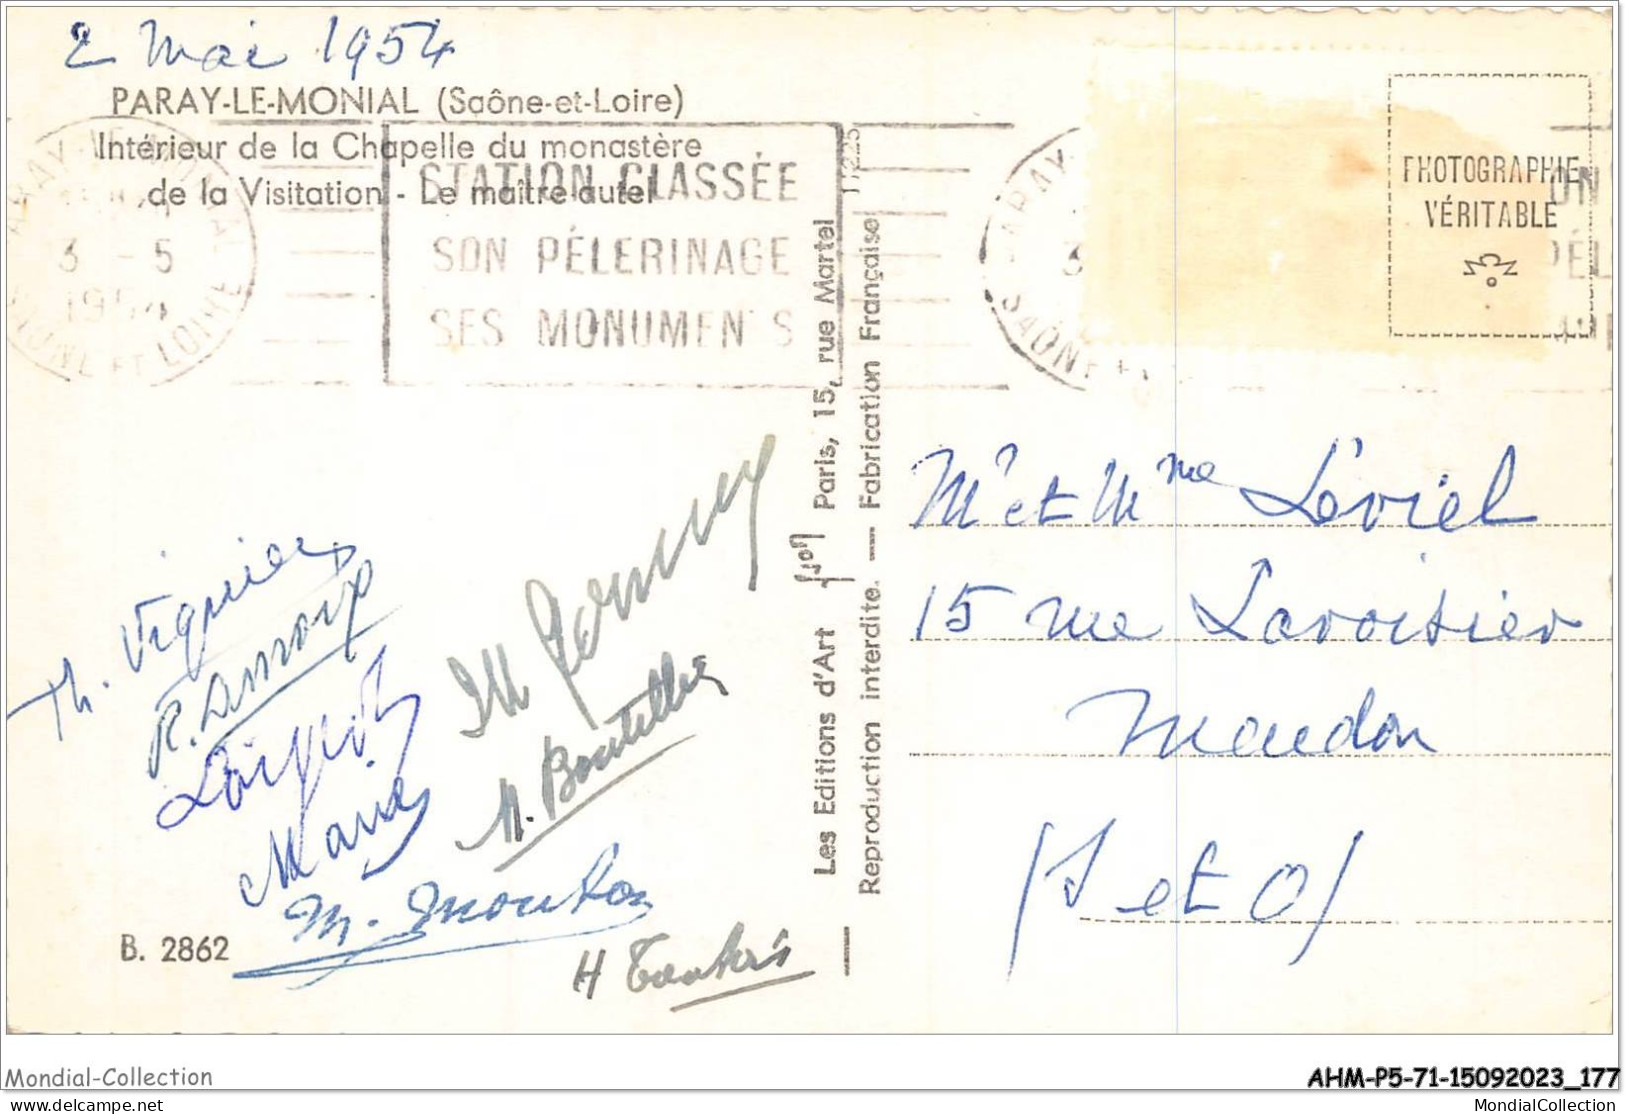 2 Mai 1954
PARAY-LE-MONIAL (Saône-et-Loire)
Intérieur de la Chapelle du monastère
de la Visitation - Le maître autel
3 - 5
1954
SAONE ET LOIRE
STATION CLASSÉE
SON PÉLERINAGE
SES MONUMEN S
11225
PHOTOGRAPHIE
VÉRITABLE
Les Editions d'Art Yvon Paris, 15, rue Martel
Reproduction interdite. — Fabrication Française
Mr et Mme Léviel
15 rue Lavoisier
Meudon
(S et O)
Th. Viguier
R.
Marie
M. Bouteller
M. Mouton
H
B. 2862
Mondial-Collection
AHM-P5-71-15092023_177
delcampe.net
MondialCollection